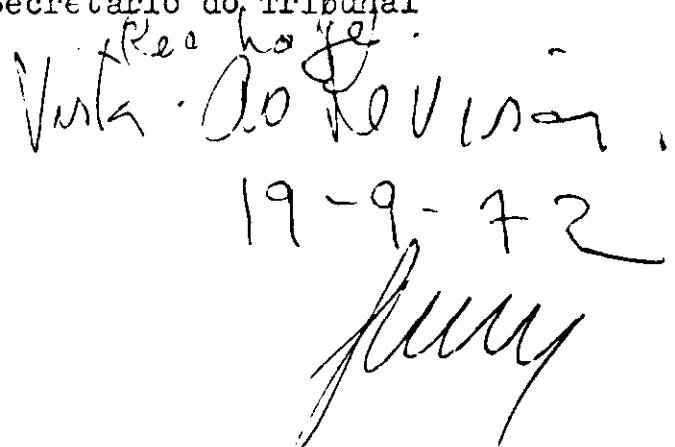 Secretário do Tribunal
Rec hoje.
Vista. Ao Revisor.
19-9-72